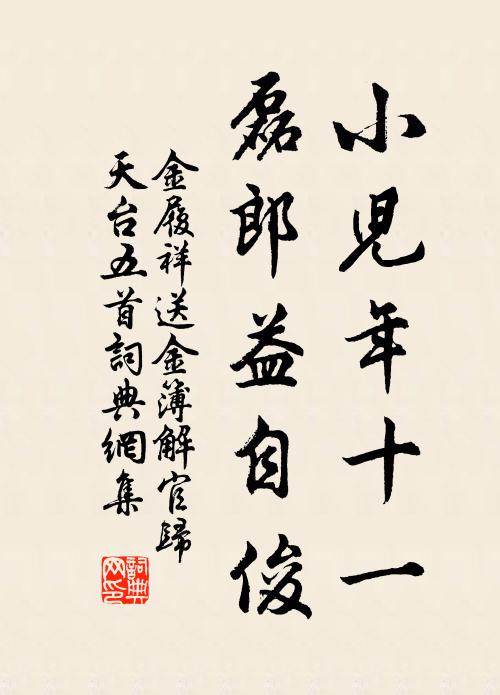 小児年十一
磊郎益自俊
金履祥送金簿解官歸
天台五首詞典網集
詞典网印